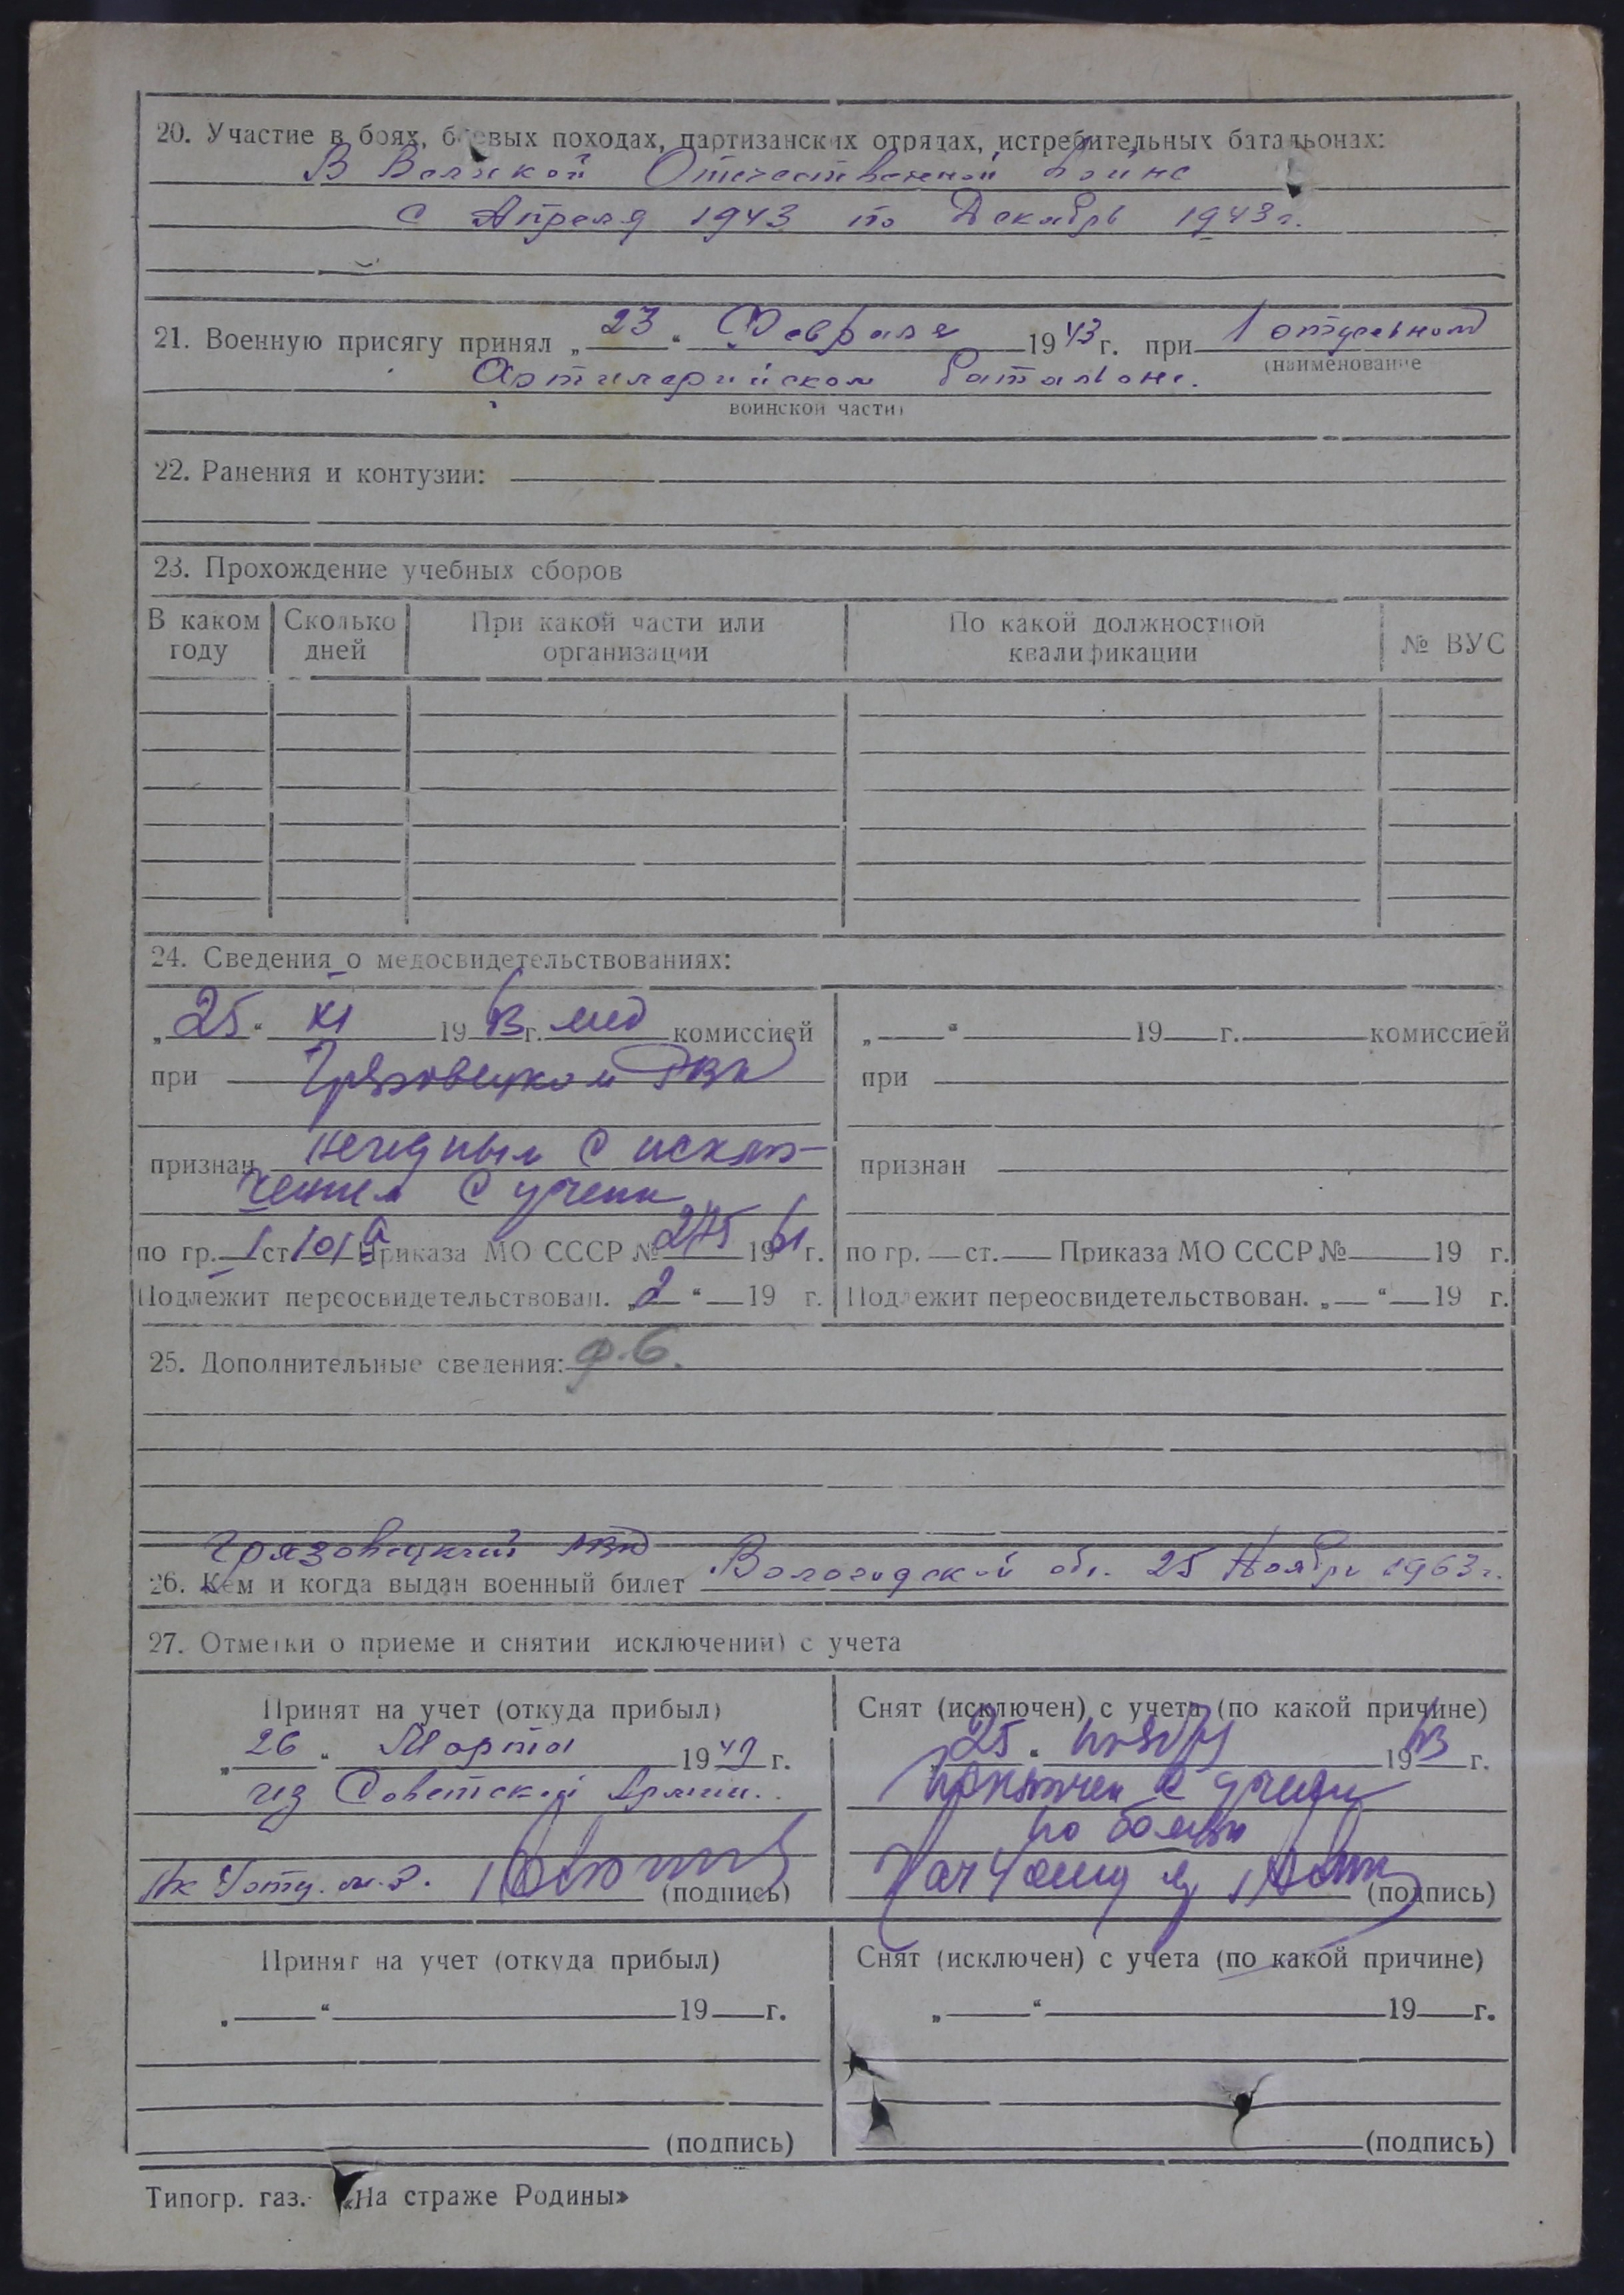 20. Участие в боях, боевых походах, партизанских отрядах, истребительных батальонах:
В Великой Отечественной войне
с Апреля 1943 по Декабрь 1943г.
21. Военную присягу принял „23“ Февраля 1943 г. при 1 отдельном
(наименование
Артилерийском баталионе.
воинской части)
22. Ранения и контузии:
23. Прохождение учебных сборов
В каком году Сколько дней При какой части или организации По какой должностной квалификации № ВУС
24. Сведения о медосвидетельствованиях:
„25“ XI 1963 г. мед комиссией
при Грязовецком РВК
признан негодным с исклю-
чением с учета
по гр. I ст. 101а Приказа МО СССР № 275 1961 г.
Подлежит переосвидетельствован. „ “ 19 г.
„ “ 19 г. комиссией
при
признан
по гр. ст. Приказа МО СССР № 19 г.
Подлежит переосвидетельствован. „ “ 19 г.
25. Дополнительные сведения: ф.6.
Грязовецкий РВК
26. Кем и когда выдан военный билет Вологодской обл. 25 Ноября 1963 г.
27. Отметки о приеме и снятии исключении) с учета
Принят на учет (откуда прибыл)
„26“ Марта 1949 г.
из Советской Армии.
(подпись)
Снят (исключен) с учета (по какой причине)
„25“ ноября 1963 г.
исключен с учета
по болезни
(подпись)
Принят на учет (откуда прибыл)
„ “ 19 г.
(подпись)
Снят (исключен) с учета (по какой причине)
„ “ 19 г.
(подпись)
Типогр. газ. «На страже Родины»